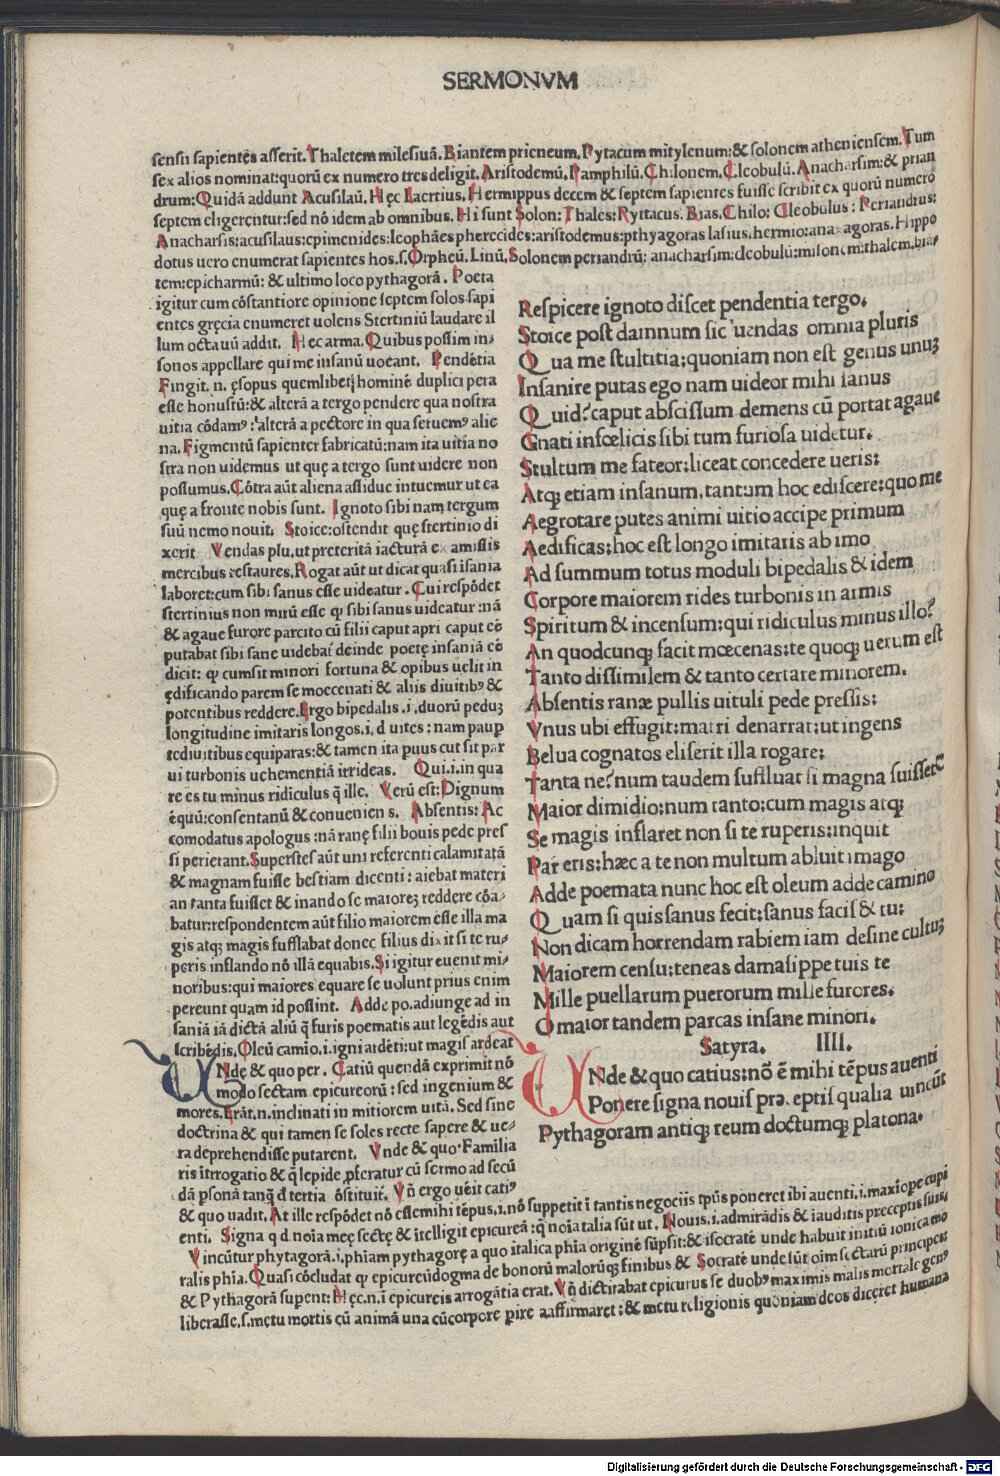 SERMONVM
sensu sapientes asserit. Thaletem milesiuã. Biantem prieneum. Pytacum mitylenum: & solonem atheniensem. Tum
sex alios nominat: quorũ ex numero tres deligit. Aristodemũ, Pamphilũ, Chilonem, Cleobulũ. Anacharsim: & prian
drum: Quidã addunt Acusilaũ. Hęc Laertius. Hermippus decem & septem sapientes fuisse scribit ex quorũ numero
septem eligerentur: sed nõ idem ab omnibus. Hi sunt Solon: Thales: Pyttacus. Bias. Chilo: Cleobulus: Periandrus:
Anacharsis: acusilaus: epimenides: leophães pherecides: aristodemus: pthyagoras lasius. hermio: anaxagoras. Hippo
dotus uero enumerat sapientes hos. s. Orpheũ. Linũ. Solonem periandrũ: anacharsim: cleobulũ: misonem: thalem. bia-
tem: epicharmũ: & ultimo loco pythagorã. Poeta
igitur cum cõstantiore opinione septem solos sapi
entes gręcia enumeret uolens Stertiniũ laudare il
lum octauũ addit. Hec arma. Quibus possim in-
sonos appellare qui me insanũ uocant. Pendẽtia
Fingit. n. ęsopus quemlibet hominẽ duplici pera
esse honustũ: & alterã a tergo pendere qua nostra
uitia cõdamꝰ: alterã a pectore in qua seruemꝰ alie
na. Figmentũ sapienter fabricatũ: nam ita uitia no
stra non uidemus ut quę a tergo sunt uidere non
possumus. Cõtra aũt aliena assidue intuemur ut ea
quę a fronte nobis sunt. Ignoto sibi nam tergum
suũ nemo nouit. Stoice: ostendit quę stertinio di
xerit Vendas plu. ut preteritã iacturã ex amissis
mercibus restaures. Rogat aũt ut dicat quasi isania
laboret: cum sibi sanus esse uideatur. Cui respõdet
stertinius non mirũ esse ꝙ sibi sanus uideatur: nã
& agaue furore parcito cũ filii caput apri caput eẽ
putabat sibi sane uidebat deinde poetę insaniã eẽ
dicit: ꝙ cum sit minori fortuna & opibus uelit in
ędificando parem se moecenati & aliis diuitibꝰ &
potentibus reddere. Ergo bipedalis. i. duorũ pedũ
longitudine imitaris longos. i. diuites: nam paup
te diuitibus equiparas: & tamen ita puus cut sit par
ui turbonis uehementiã irrideas. Qui. i. in qua
re es tu minus ridiculus q̃ ille. Verũ est: Dignum
ẽquũ: consentanũ & conueniens. Absentis: Ac
comodatus apologus: nã ranę filii bouis pede pres
si perierant. Superstes aũt uni referenti calamitatã
& magnam fuisse bestiam dicenti: aiebat materi
an tanta fuisset & inando se maiorẽ reddere cõa-
batur: respondentem aũt filio maiorem esse illa ma
gis atqꝫ magis sufflabat donec filius dixit si te ru-
peris inflando nõ illã equabis. Si igitur euenit mi-
noribus: qui maiores equare se uolunt prius enim
pereunt quam id possint. Adde po. adiunge ad in
saniã iã dictã aliũ q̃ furis poematis aut legẽdis aut
scribẽdis. Oleũ camio. i. igni ardẽti: ut magis ardeat
VNde & quo per. Catiũ quendã exprimit nõ
modo sectam epicureorũ: sed ingenium &
mores. Erãt. n. inclinati in mitiorem uitã. Sed sine
doctrina & qui tamen se soles recte sapere & ue-
ra deprehendisse putarent. Vnde & quo. Familia
ris ĩtrrogatio & q̃ lepide pferatur cũ sermo ad secũ
dã psonã tanq̃ đ tertia õstituit. Vñ ergo uẽit catiꝰ
& quo uadit. At ille respõdet nõ esse mihi tẽpus. i. nõ suppetit ĩ tantis negociis tp̃us ponere ibi auenti. i. maxiope cupi
enti. Signa q d noia meę sectę & ĩtelligit epicureã: q̃ noia talia sũt ut. Nouis. i. admirãdis & iauditis preceptis suis.
Vincũtur phytagorã. i. phiam pythagorę a quo italica phia originẽ sũpsit: & isocratẽ unde habuit initiũ ionica mo
ralis phia. Quasi cõcludat ꝙ epicureũ dogma de bonorũ malorũqꝫ finibus & Socratẽ unde sũt oĩm sectarũ principes:
& Pythagorã supent: Hęc. n. ĩ epicureis arrogãtia erat. Vñ dictirabat epicurus se duobꝰ maximis malis mortale genꝰ
liberasse. s. metu mortis cũ animã una cũ corpore pire aaffirmaret: & metu religionis quoniam deos diceret humana
Respicere ignoto discet pendentia tergo.
Stoice post damnum sic uendas omnia pluris
Qua me stultitia: quoniam non est genus unuꝫ
Insanire putas ego nam uideor mihi sanus
Quid? caput abscissum demens cũ portat agaue
Gnati infœlicis sibi tum furiosa uidetur.
Stultum me fateor: liceat concedere ueris:
Atqꝫ etiam insanum. tantum hoc ediscere: quo me
Aegrotare putes animi uitio accipe primum
Aedificas: hoc est longo imitaris ab imo
Ad summum totus moduli bipedalis & idem
Corpore maiorem rides turbonis in armis
Spiritum & incensum: qui ridiculus minus illo?
An quodcunqꝫ facit mœcenas: te quoqꝫ uerum est
Tanto dissimilem & tanto certare minorem.
Absentis ranæ pullis uituli pede pressis:
Vnus ubi effugit: matri denarrat: ut ingens
Belua cognatos eliserit illa rogare:
Tanta ne? num taudem sufluat si magna fuisset
Maior dimidio: num tanto: cum magis atqꝫ
Se magis inflaret non si te ruperis: inquit
Par eris: hæc a te non multum abluit imago
Adde poemata nunc hoc est oleum adde camino
Quam si quis sanus fecit: sanus facis & tu:
Non dicam horrendam rabiem iam desine cultuꝫ
Maiorem censu: teneas damasippe tuis te
Mille puellarum puerorum mille furores.
O maior tandem parcas insane minori.
Satyra. IIII.
VNde & quo catius: nõ ẽ mihi tẽpus auenti
Ponere signa nouis præceptis qualia uincũt
Pythagoram antiqꝫ reum doctumqꝫ platona.
Digitalisierung gefördert durch die Deutsche Forschungsgemeinschaft - DFG